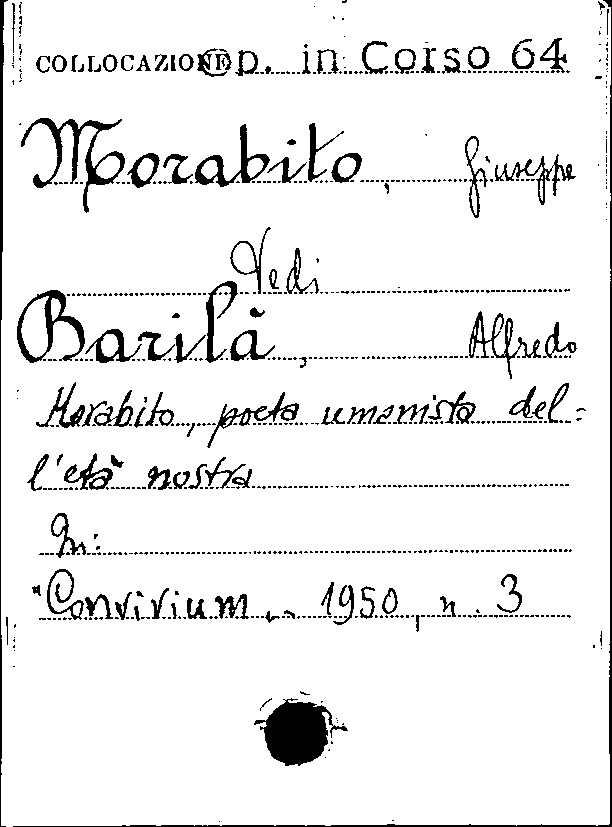 COLLOCAZIONE p. in Corso 64
Morabito, Giuseppe
Vedi
Barilà, Alfredo
Morabito, poeta umanista del=
l'età nostra
In:
"Convivium„ 1950, n. 3